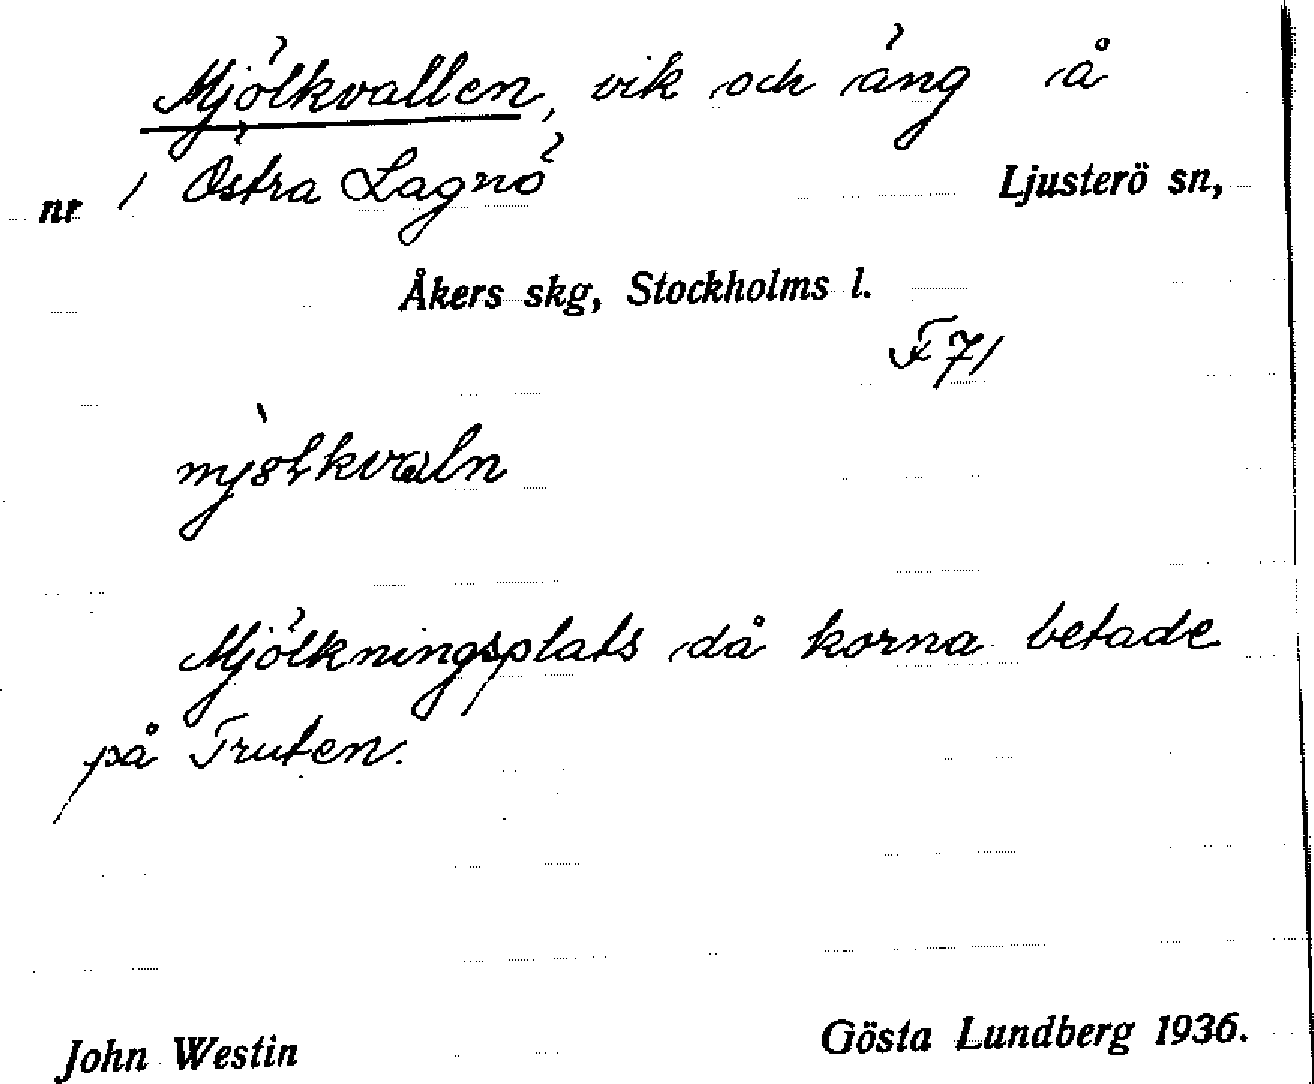 Mjölkvallen, vik och äng å
nr 1 Östra Lagnö Ljusterö sn,
Åkers skg, Stockholms l.
F 71
Mjölkningsplats då korna betade
på Truten.
John Westin Gösta Lundberg 1936.